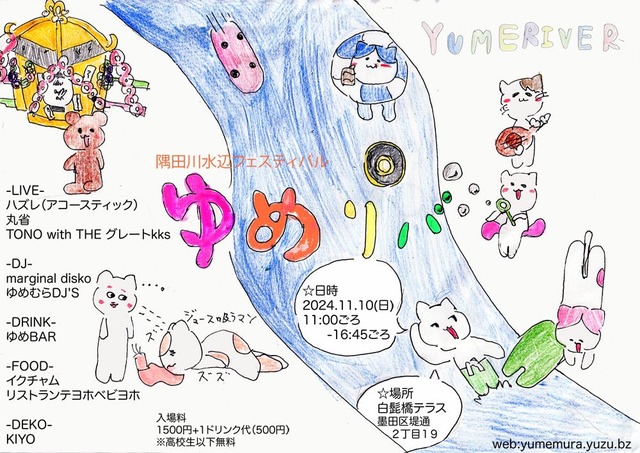 YUMERIVER
隅田川水辺フェスティバル
ゆめリバー
-LIVE-
ハズレ(アコースティック)
丸省
TONO with THE グレートkks
-DJ-
marginal disko
ゆめむらDJ'S
-DRINK-
ゆめBAR
-FOOD-
イクチャム
リストランテヨホベビヨホ
-DEKO-
KIYO
ジュースの吸うマン
ズ
ズズ
☆日時
2024.11.10(日)
11:00ごろ
-16:45ごろ
☆場所
白髭橋テラス
墨田区堤通
2丁目19
入場料
1500円+1ドリンク代(500円)
※高校生以下無料
web:yumemura.yuzu.bz